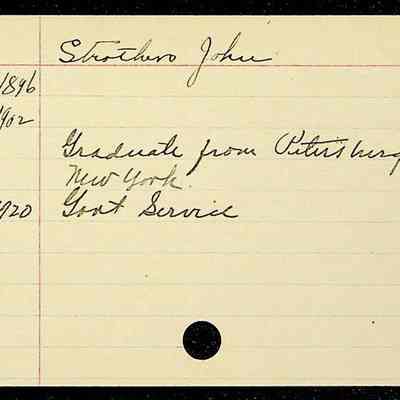 Strothers John
1896
1902
Graduate from Petersburg
New York.
1920 Govt Service